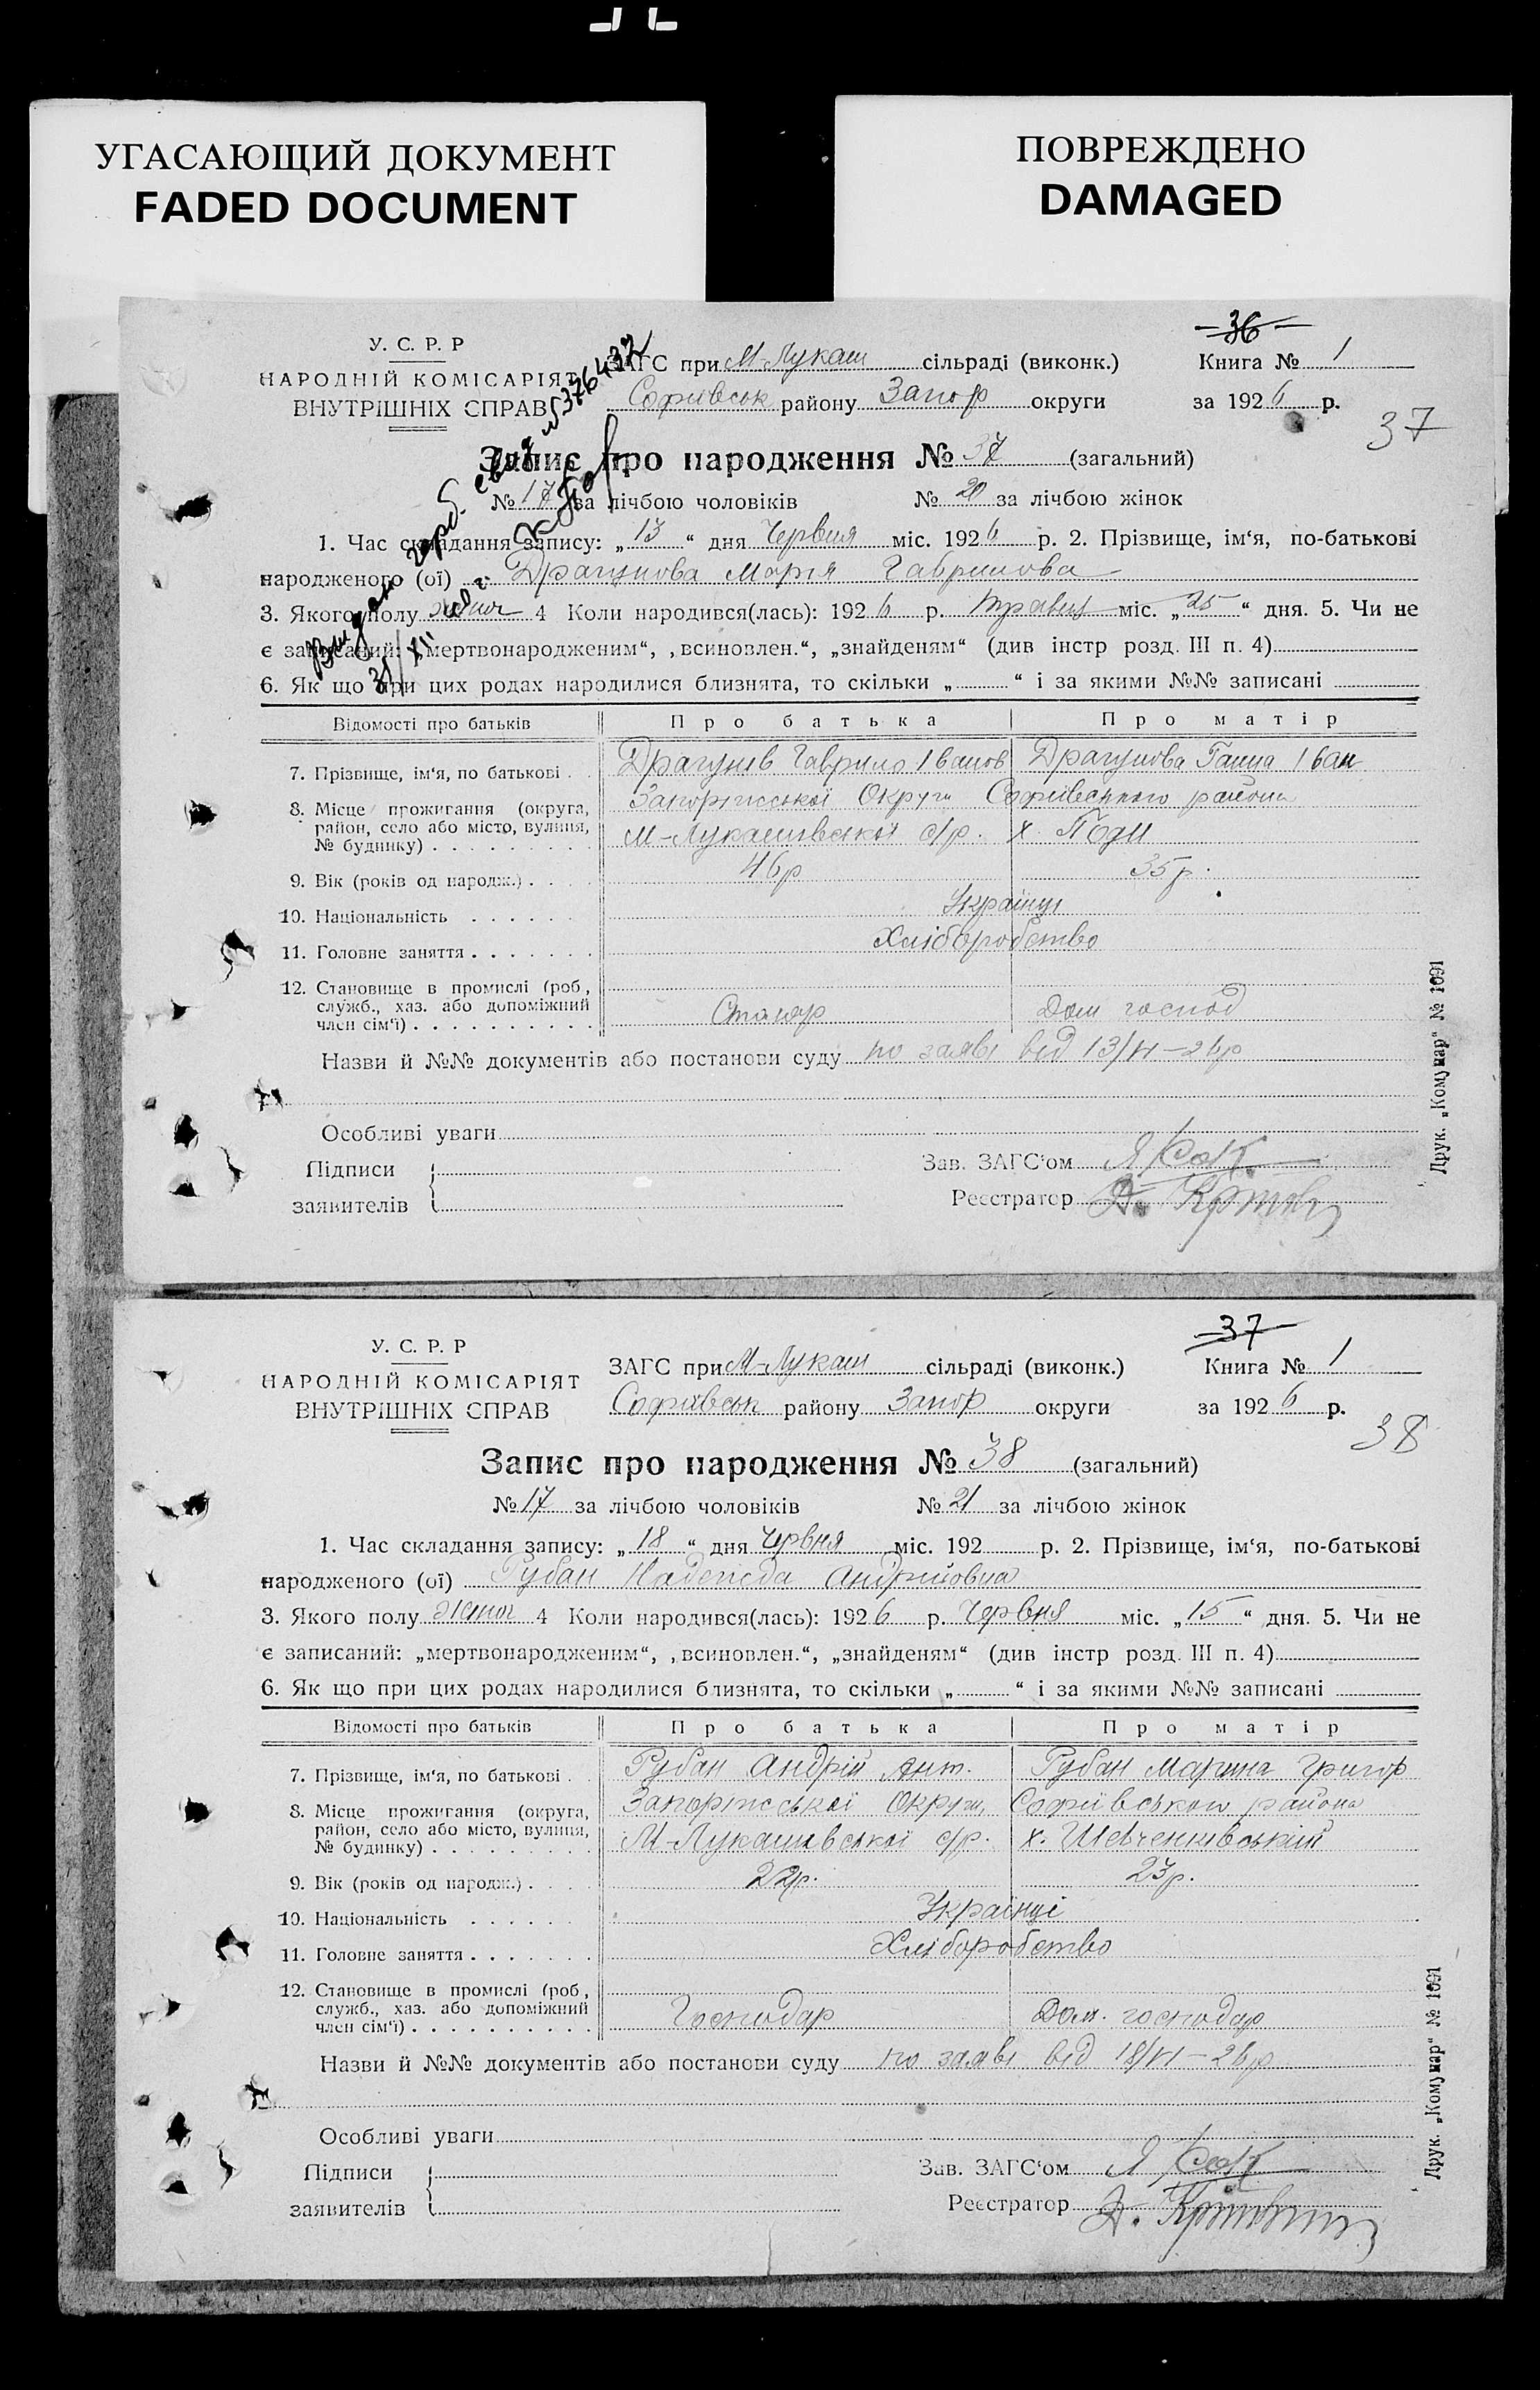 УГАСАЮЩИЙ ДОКУМЕНТ
FADED DOCUMENT
ПОВРЕЖДЕНО
DAMAGED
У. С. Р. Р
НАРОДНІЙ КОМІСАРІЯТ
ВНУТРІШНІХ СПРАВ
ЗАГС при М-Лукаш сільраді (виконк.)
Софіївськ району Запор округи
36
Книга № 1
за 1926 р.
37
Запис про народження № 37 (загальний)
№ 17 за лічбою чоловіків № 20 за лічбою жінок
1. Час складання запису: „13“ дня Червня міс. 1926 р. 2. Прізвище, ім‘я, по-батькові
народженого (ої) Драгунова Марія Гаврилова
3. Якого полу жіноч 4 Коли народився(лась): 1926 р. травня міс. „25“ дня. 5. Чи не
є записаний: „мертвонародженим“, „всиновлен.“, „знайденям“ (див інстр розд. III п. 4)
6. Як що при цих родах народилися близнята, то скільки „ “ і за якими №№ записані
Видано
31/XII
№ 376432
Відомості про батьків Про батька Про матір
7. Прізвище, ім‘я, по батькові . Драгунів Гаврило Іванов Драгунова Ганна Іван
8. Місце прожигання (округа, район, село або місто, вулиця, № будинку) . . . . . . . . .
Запоріжської Округи Софіївського района
М-Лукашівської с/р. х.
9. Вік (років од народж.) . . . . 46р 35р.
10. Національність . . . . . . Українці
11. Головне заняття . . . . . . . Хліборобство
12. Становище в промислі (роб, служб., хаз. або допоміжний член сім‘ї) . . . . . . . . . .
Столяр Дом господ
Назви й №№ документів або постанови суду по заяві від 13/VI-26р
Особливі уваги
Підписи
заявителів
Зав. ЗАГС‘ом
Реєстратор
Друк. „Комунар“ № 1091
У. С. Р. Р
НАРОДНІЙ КОМІСАРІЯТ
ВНУТРІШНІХ СПРАВ
ЗАГС при М-Лукаш сільраді (виконк.)
Софіївськ району Запор округи
37
Книга № 1
за 1926 р.
38
Запис про народження № 38 (загальний)
№ 17 за лічбою чоловіків № 21 за лічбою жінок
1. Час складання запису: „18“ дня Червня міс. 192 р. 2. Прізвище, ім‘я, по-батькові
народженого (ої) Рубан Надежда Андрийовна
3. Якого полу жіноч 4 Коли народився(лась): 1926 р. Червня міс. „15“ дня. 5. Чи не
є записаний: „мертвонародженим“, „всиновлен.“, „знайденям“ (див інстр розд. III п. 4)
6. Як що при цих родах народилися близнята, то скільки „ “ і за якими №№ записані
Відомості про батьків Про батька Про матір
7. Прізвище, ім‘я, по батькові . Рубан Андрій Ант. Рубан Марина Григор
8. Місце прожигання (округа, район, село або місто, вулиця, № будинку) . . . . . . . . .
Запоріжської Округи, Софіївського района
М-Лукашівської с/р. х. Шевченківський
9. Вік (років од народж.) . . . . 22р. 23р.
10. Національність . . . . . . Українці
11. Головне заняття . . . . . . . Хліборобство
12. Становище в промислі (роб, служб., хаз. або допоміжний член сім‘ї) . . . . . . . . . .
Господар Дом. господар
Назви й №№ документів або постанови суду по заяві від 18/VI-26р
Особливі уваги
Підписи
заявителів
Зав. ЗАГС‘ом
Реєстратор
Друк. „Комунар“ № 1091